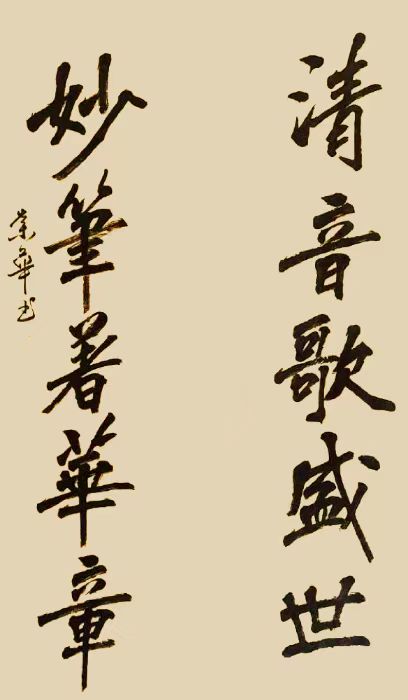 清音歌盛世
妙筆著華章
荣華书